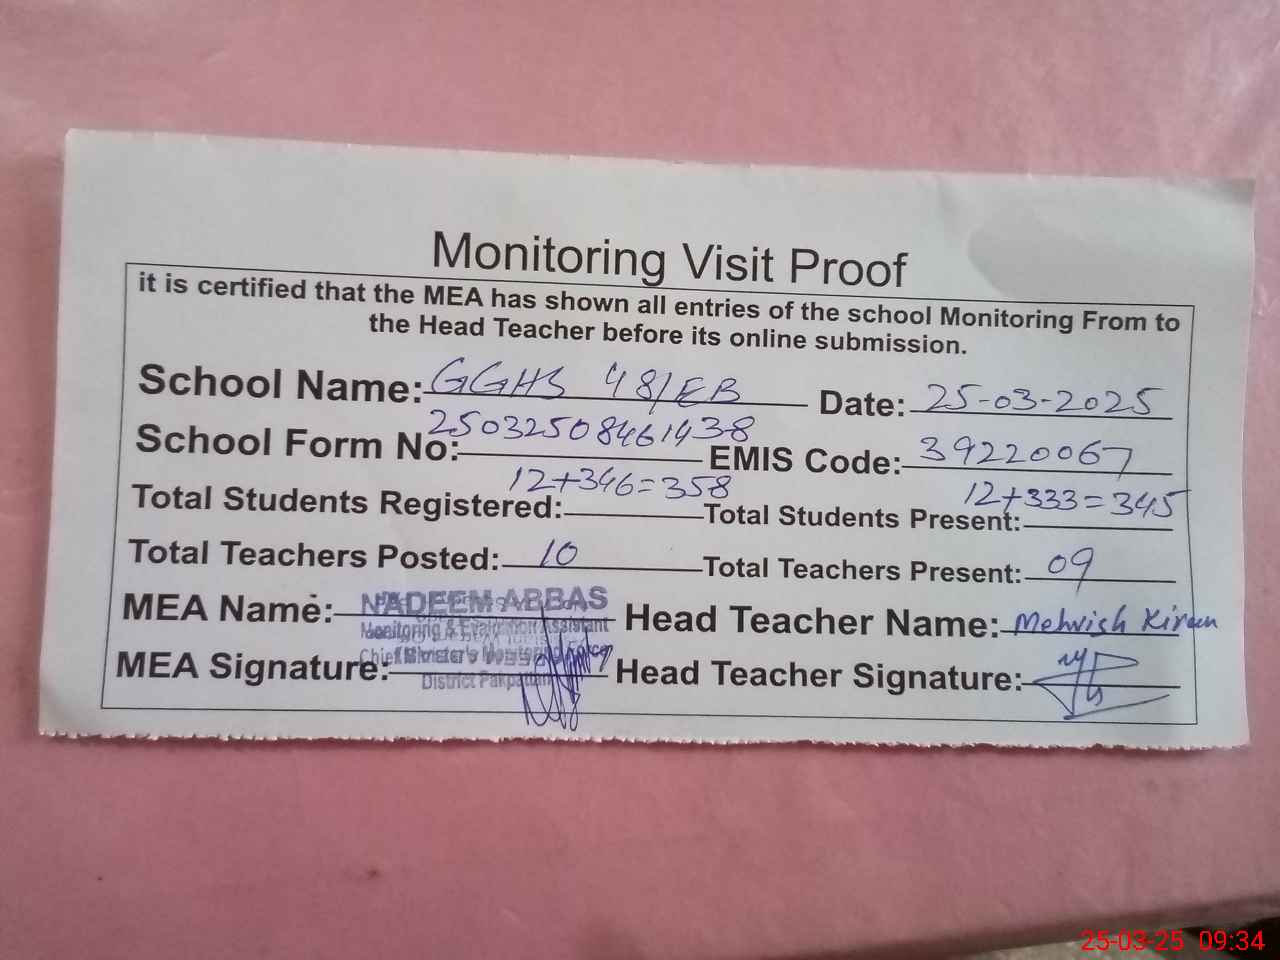 Monitoring Visit Proof
it is certified that the MEA has shown all entries of the school Monitoring From to
the Head Teacher before its online submission.
School Name: GGHS 48/EB Date: 25-03-2025
School Form No: 25032508461438 EMIS Code: 39220067
Total Students Registered: 12+346=358 Total Students Present: 12+333=345
Total Teachers Posted: 10 Total Teachers Present: 09
MEA Name: NADEEM ABBAS Head Teacher Name: Mehvish Kiran
Monitoring & Evaluation Assistant
Chief Minister's Monitoring Force
District Pakpattan
MEA Signature: Head Teacher Signature:
25-03-25 09:34